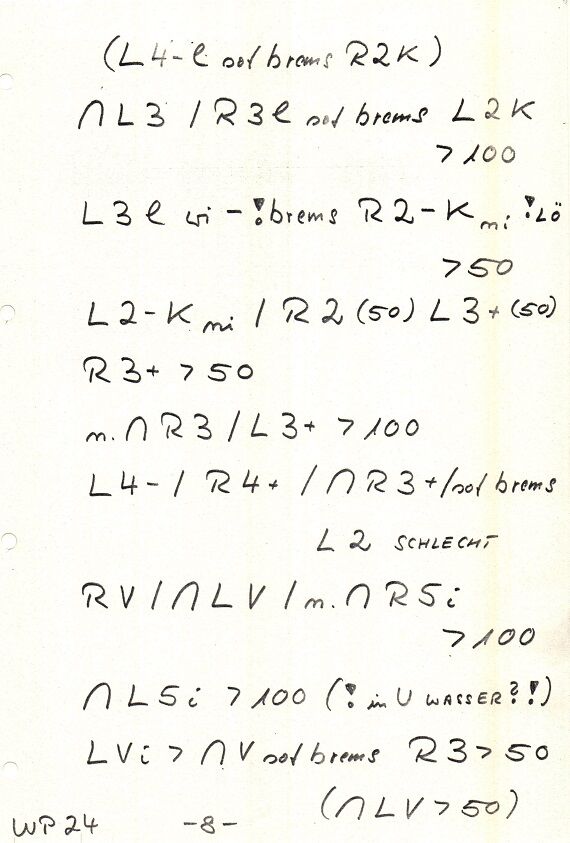 (L4-l sof brems R2K)
∩ L3 / R3l sof brems L2K
>100
L3l wi - ! brems R2-K mi ! LÖ
>50
L2-K mi / R2 (50) L3+ (50)
R3+ >50
m. ∩ R3 / L3+ >100
L4- / R4+ / ∩ R3+ / sof brems
L2 SCHLECHT
RV / ∩ LV / m. ∩ R5i
>100
∩ L5i >100 (! in U WASSER?!)
LVi > ∩ V sof brems R3 >50
(∩ LV >50)
WP24 -8-